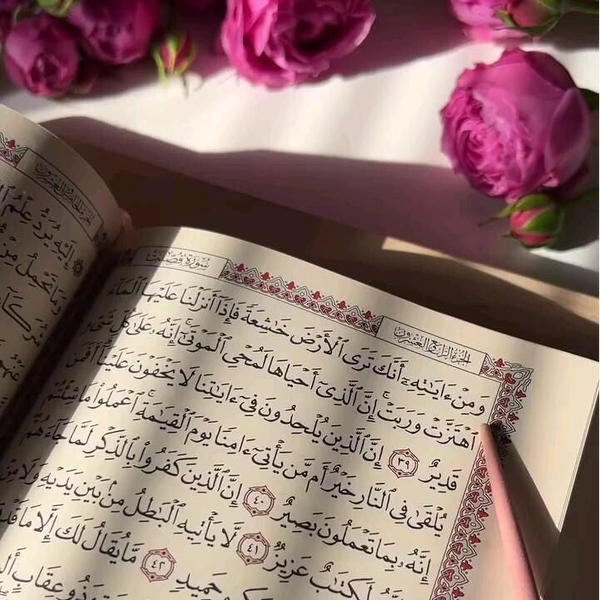 سُورَةُ فُصِّلَتْ الجُزْءُ الرَّابِعُ وَالعِشْرُونَ
وَمِنْ ءَايَٰتِهِۦٓ أَنَّكَ تَرَى ٱلْأَرْضَ خَٰشِعَةً فَإِذَآ أَنزَلْنَا عَلَيْهَا ٱلْمَآءَ
ٱهْتَزَّتْ وَرَبَتْۚ إِنَّ ٱلَّذِىٓ أَحْيَاهَا لَمُحْىِ ٱلْمَوْتَىٰٓۚ إِنَّهُۥ عَلَىٰ كُلِّ شَىْءٍ
قَدِيرٌ ٣٩ إِنَّ ٱلَّذِينَ يُلْحِدُونَ فِىٓ ءَايَٰتِنَا لَا يَخْفَوْنَ عَلَيْنَآۗ أَفَمَن
يُلْقَىٰ فِى ٱلنَّارِ خَيْرٌ أَم مَّن يَأْتِىٓ ءَامِنًا يَوْمَ ٱلْقِيَٰمَةِۚ ٱعْمَلُوا۟ مَا شِئْتُمْ
إِنَّهُۥ بِمَا تَعْمَلُونَ بَصِيرٌ ٤٠ إِنَّ ٱلَّذِينَ كَفَرُوا۟ بِٱلذِّكْرِ لَمَّا جَآءَهُمْ
لَكِتَٰبٌ عَزِيزٌ ٤١ لَّا يَأْتِيهِ ٱلْبَٰطِلُ مِنۢ بَيْنِ يَدَيْهِ وَلَا مِنْ
حَمِيدٍ ٤٢ مَّا يُقَالُ لَكَ إِلَّا مَا قَدْ
وَذُو عِقَابٍ
إِلَيْهِ يُرَدُّ عِلْمُ
وَمَا تَحْمِلُ مِنْ